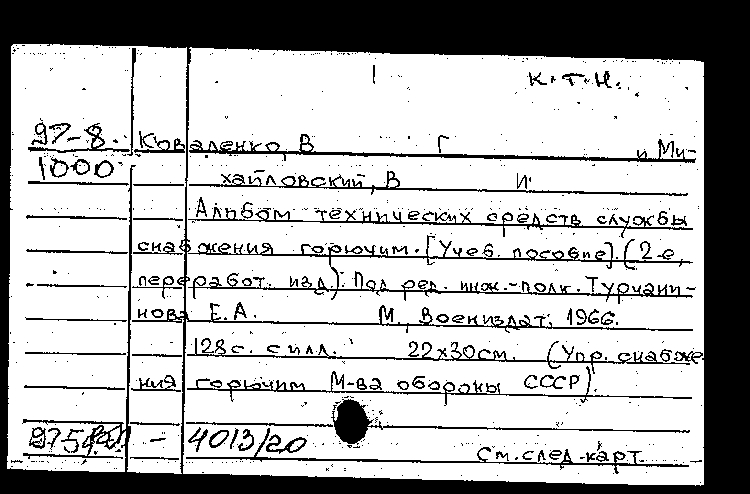 К.Т.Н.
97-8. Коваленко, В Г и Ми-
1000 хайловский, В И
Альбом технических средств службы
снабжения горючим. [Учеб. пособие]. (2-е,
переработ. изд.). Под ред. инж.-полк. Турчани-
нова Е.А. М., Воениздат, 1966.
128 с. с илл. 22х30см. (Упр. снабже
ния горючим М-ва обороны СССР).
- 4013/20 См. след. карт.